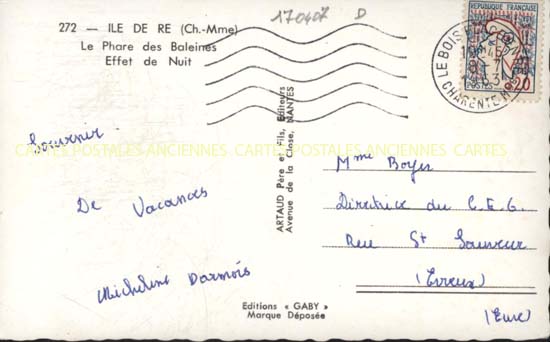 170407 D
272 — ILE DE RE (Ch.-Mme)
Le Phare des Baleines
Effet de Nuit
REPUBLIQUE FRANÇAISE
POSTES
0,20
LE BOIS PLAGE EN RE
CHARENTE MME
Souvenir
De Vacances
Micheline Darmois
ARTAUD Père et Fils, Editeurs
Avenue de la Close, NANTES
Mme Boyer
Directrice du C.E.G.
Rue St Sauveur
(Evreux)
(Eure)
Editions « GABY »
Marque Déposée
CARTES POSTALES ANCIENNES CARTES POSTALES ANCIENNES CARTES